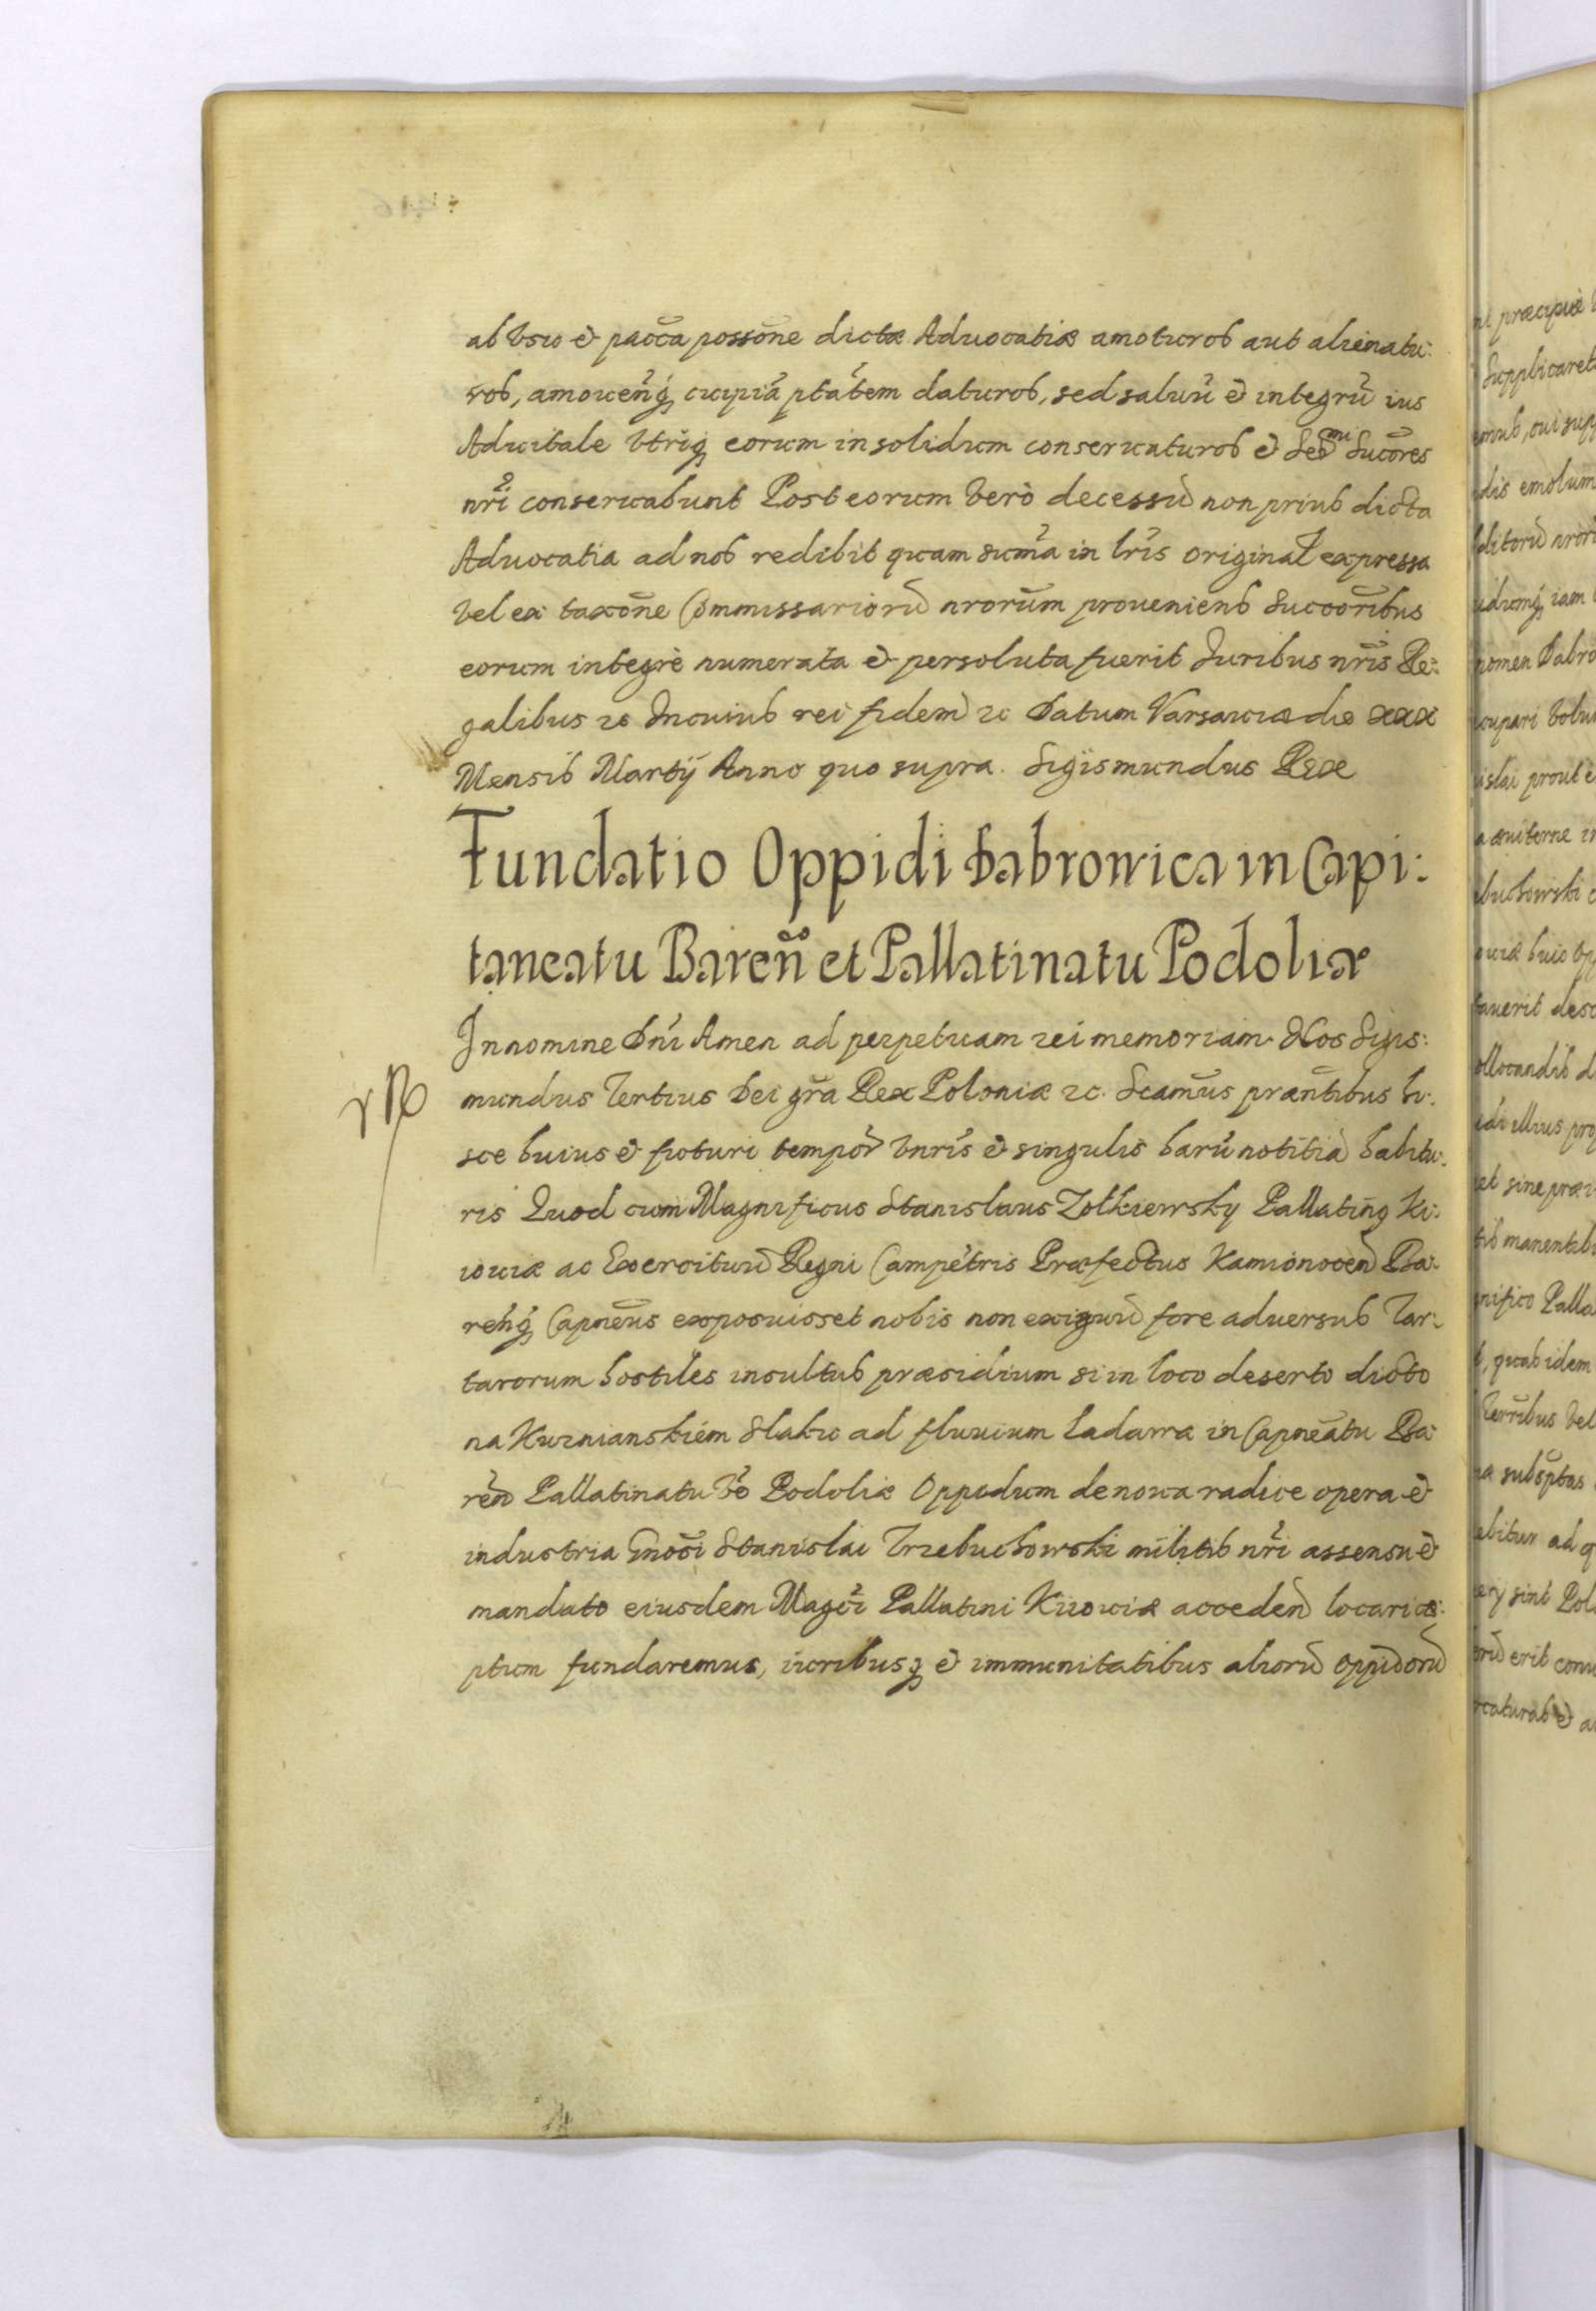 ab Vsu et pacca possõne dictæ Aduocatiæ amoturos aut alienatu:
ros, amouenq̃ cuipiã ptãtem daturos, sed saluũ et integrũ ius
Aduitale Vtriq̃ eorum in solidum conseruaturos et Ser̃mi Succõres
nr̃i conseruabunt Post eorum Verò decessũ non prius dicta
Aduocatia ad nos redibit quam sum̃a in lr̃is original expressa
Vel ex taxõne Commissariorũ nrorũm proueniens Succõribus
eorum integrè numerata et persoluta fuerit Juribus nr̃is Re:
galibus ꝛc In cuius rei fidem ꝛc Datum Varsauiæ die xxx
Mensis Martij Anno quo supra. Sigismundus Rex
Fundatio Oppidi Dabrowica in Capi:
taneatu Bareñ et Pallatinatu Podoliæ
In nomine Dñi Amen ad perpetuam rei memoriam. Nos Sigis:
mundus Tertius Dei gr̃a Rex Poloniæ ꝛc. Scam̃us præntĩbus li:
sce huius et futuri tempor Vnr̃is et singulis harũ notitiã habitu:
ris Quod cum Magnificus Stanislaus Zolkiewsky Pallatinq Ki:
iouiæ ac Exercituũ Regni Campetris Præfectus Kamionacen Ba:
renq̃ Capneũs exposuisset nobis non exiguũ fore aduersus Tar:
tarorum hostiles insultus præsidium si in loco deserto dicto
na Kuznianskiém Slaku ad fluuium Ladawa in Capneãtu Ba:
ren Pallatinatu Vo Podoliæ Oppidum de noua radice opera et
industria Gnõsi Stanislai Trzebuchowski militis nr̃i assensu et
mandato eiusdem Magci Pallatini Kiiouiæ acceden locari cæ:
ptum fundaremus, iuribusq̃ et immunitatibus aliorũ oppidorũ
γ R